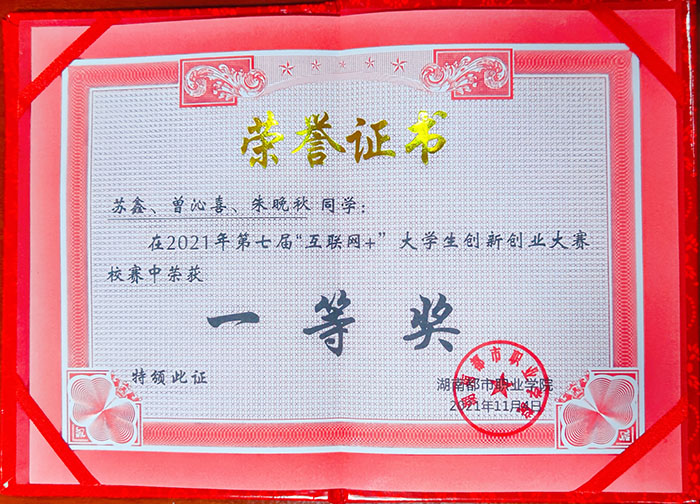 荣誉证书
苏鑫、曾沁喜、朱晚秋 同学：
在2021年第七届“互联网+”大学生创新创业大赛
校赛中荣获
一等奖
特颁此证
湖南都市职业学院
2021年11月4日
湖南都市职业学院